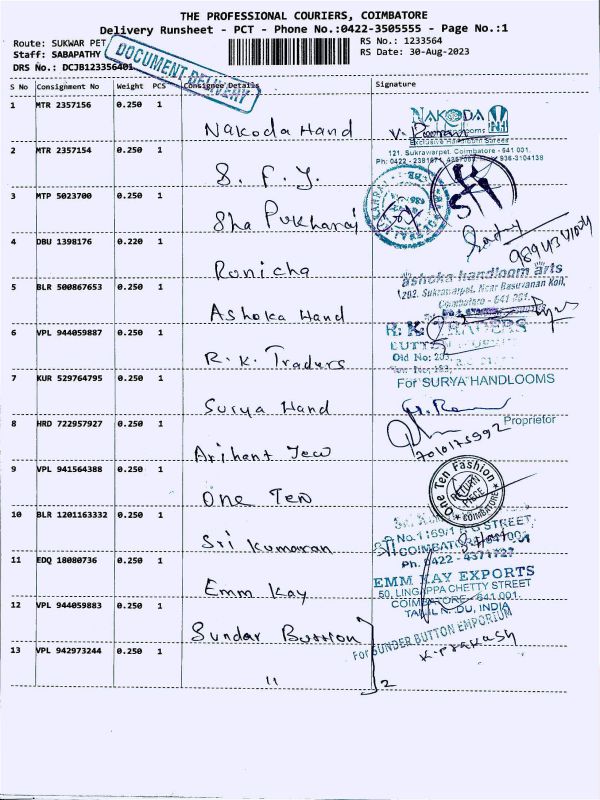 THE PROFESSIONAL COURIERS, COIMBATORE
Delivery Runsheet - PCT - Phone No.:0422-3505555 - Page No.:1
Route: SUKWAR PET
RS No.: 1233564
Staff: SABAPATHY
RS Date: 30-Aug-2023
DRS No.: DCJB123356401
DOCUMENT DELIVERY
S No Consignment No Weight PCS Consignee Details Signature
1 MTR 2357156 0.250 1 Nakoda Hand
NAKODA
Exclusive Handloom Sarees
121, Sukrawarpet, Coimbatore - 641 001.
2 MTR 2357154 0.250 1 S. F. Y.
3 MTP 5023700 0.250 1 Sha Pukharaj
4 DBU 1398176 0.220 1 Ranicha
5 BLR 500867653 0.250 1 Ashoka Hand
ashoka handloom arts
202, Sukrawarpet, Near Basuvanan Koil,
Coimbatore - 641 001.
6 VPL 944059887 0.250 1 R. K. Traders
R. K. TRADERS
Old No: 203,
7 KUR 529764795 0.250 1 Surya Hand
For SURYA HANDLOOMS
Proprietor
8 HRD 722957927 0.250 1 Arihant Jew
7010175992
9 VPL 941564388 0.250 1 One Ten
One Ten Fashion
COIMBATORE
10 BLR 1201163332 0.250 1 Sri Kumaran
No.1:69/1
STREET,
COIMBATORE
Ph. 0422 - 4371727
11 EDQ 18080736 0.250 1 Emm Kay
EMM KAY EXPORTS
50, LINGAPPA CHETTY STREET
COIMBATORE - 641 001.
TAMIL NADU, INDIA
12 VPL 944059883 0.250 1 Sundar Button
For SUNDER BUTTON EMPORIUM
K. Prakash
13 VPL 942973244 0.250 1 11
2